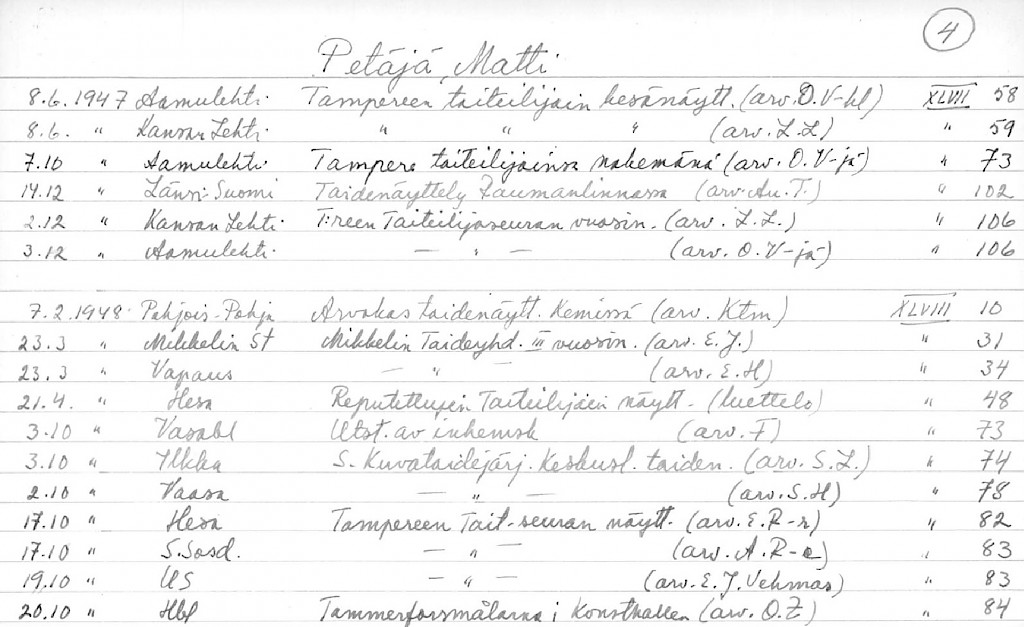 4
Petäjä, Matti
8.6.1947 Aamulehti Tampereen taiteilijain kesänäytt. (arv. O.V-hl) XLVII 58
8.6. " Kansan Lehti " " " (arv. L.L) " 59
7.10 " Aamulehti Tampere taiteilijainsa näkemänä (arv. O.V-jä) " 73
14.12 " Länsi-Suomi Taidenäyttely Raumanlinnassa (arv. Au.T.) " 102
2.12 " Kansan Lehti T:reen Taiteilijaseuran vuosin. (arv. L.L.) " 106
3.12 " Aamulehti — " — (arv. O.V-jä) " 106
7.2.1948 Pohjois-Pohja Arvokas taidenäytt. Kemissä (arv. Ktm) XLVIII 10
23.3 " Mikkelin St Mikkelin Taideyhd. III vuosin. (arv. E.J.) " 31
23.3 " Vapaus — " — (arv. E.H) " 34
21.4. " Hesa Reputettujen Taiteilijain näytt. (luettelo) " 48
3.10 " Vasabl Utst. av inhemsk (arv. F) " 73
3.10 " Ilkka S. Kuvataidejärj. Keskusl. taiden. (arv. S.L.) " 74
2.10 " Vaasa — " — (arv. S.H) " 78
17.10 " Hesa Tampereen Tait-seuran näytt. (arv. E.R-r) " 82
17.10 " S.Sosd. — " — (arv. A.R-e) " 83
19.10 " US — " — (arv. E.J.Vehmas) " 83
20.10 " Hbl Tammerforsmålarna i Konsthallen (arv. O.Z) " 84